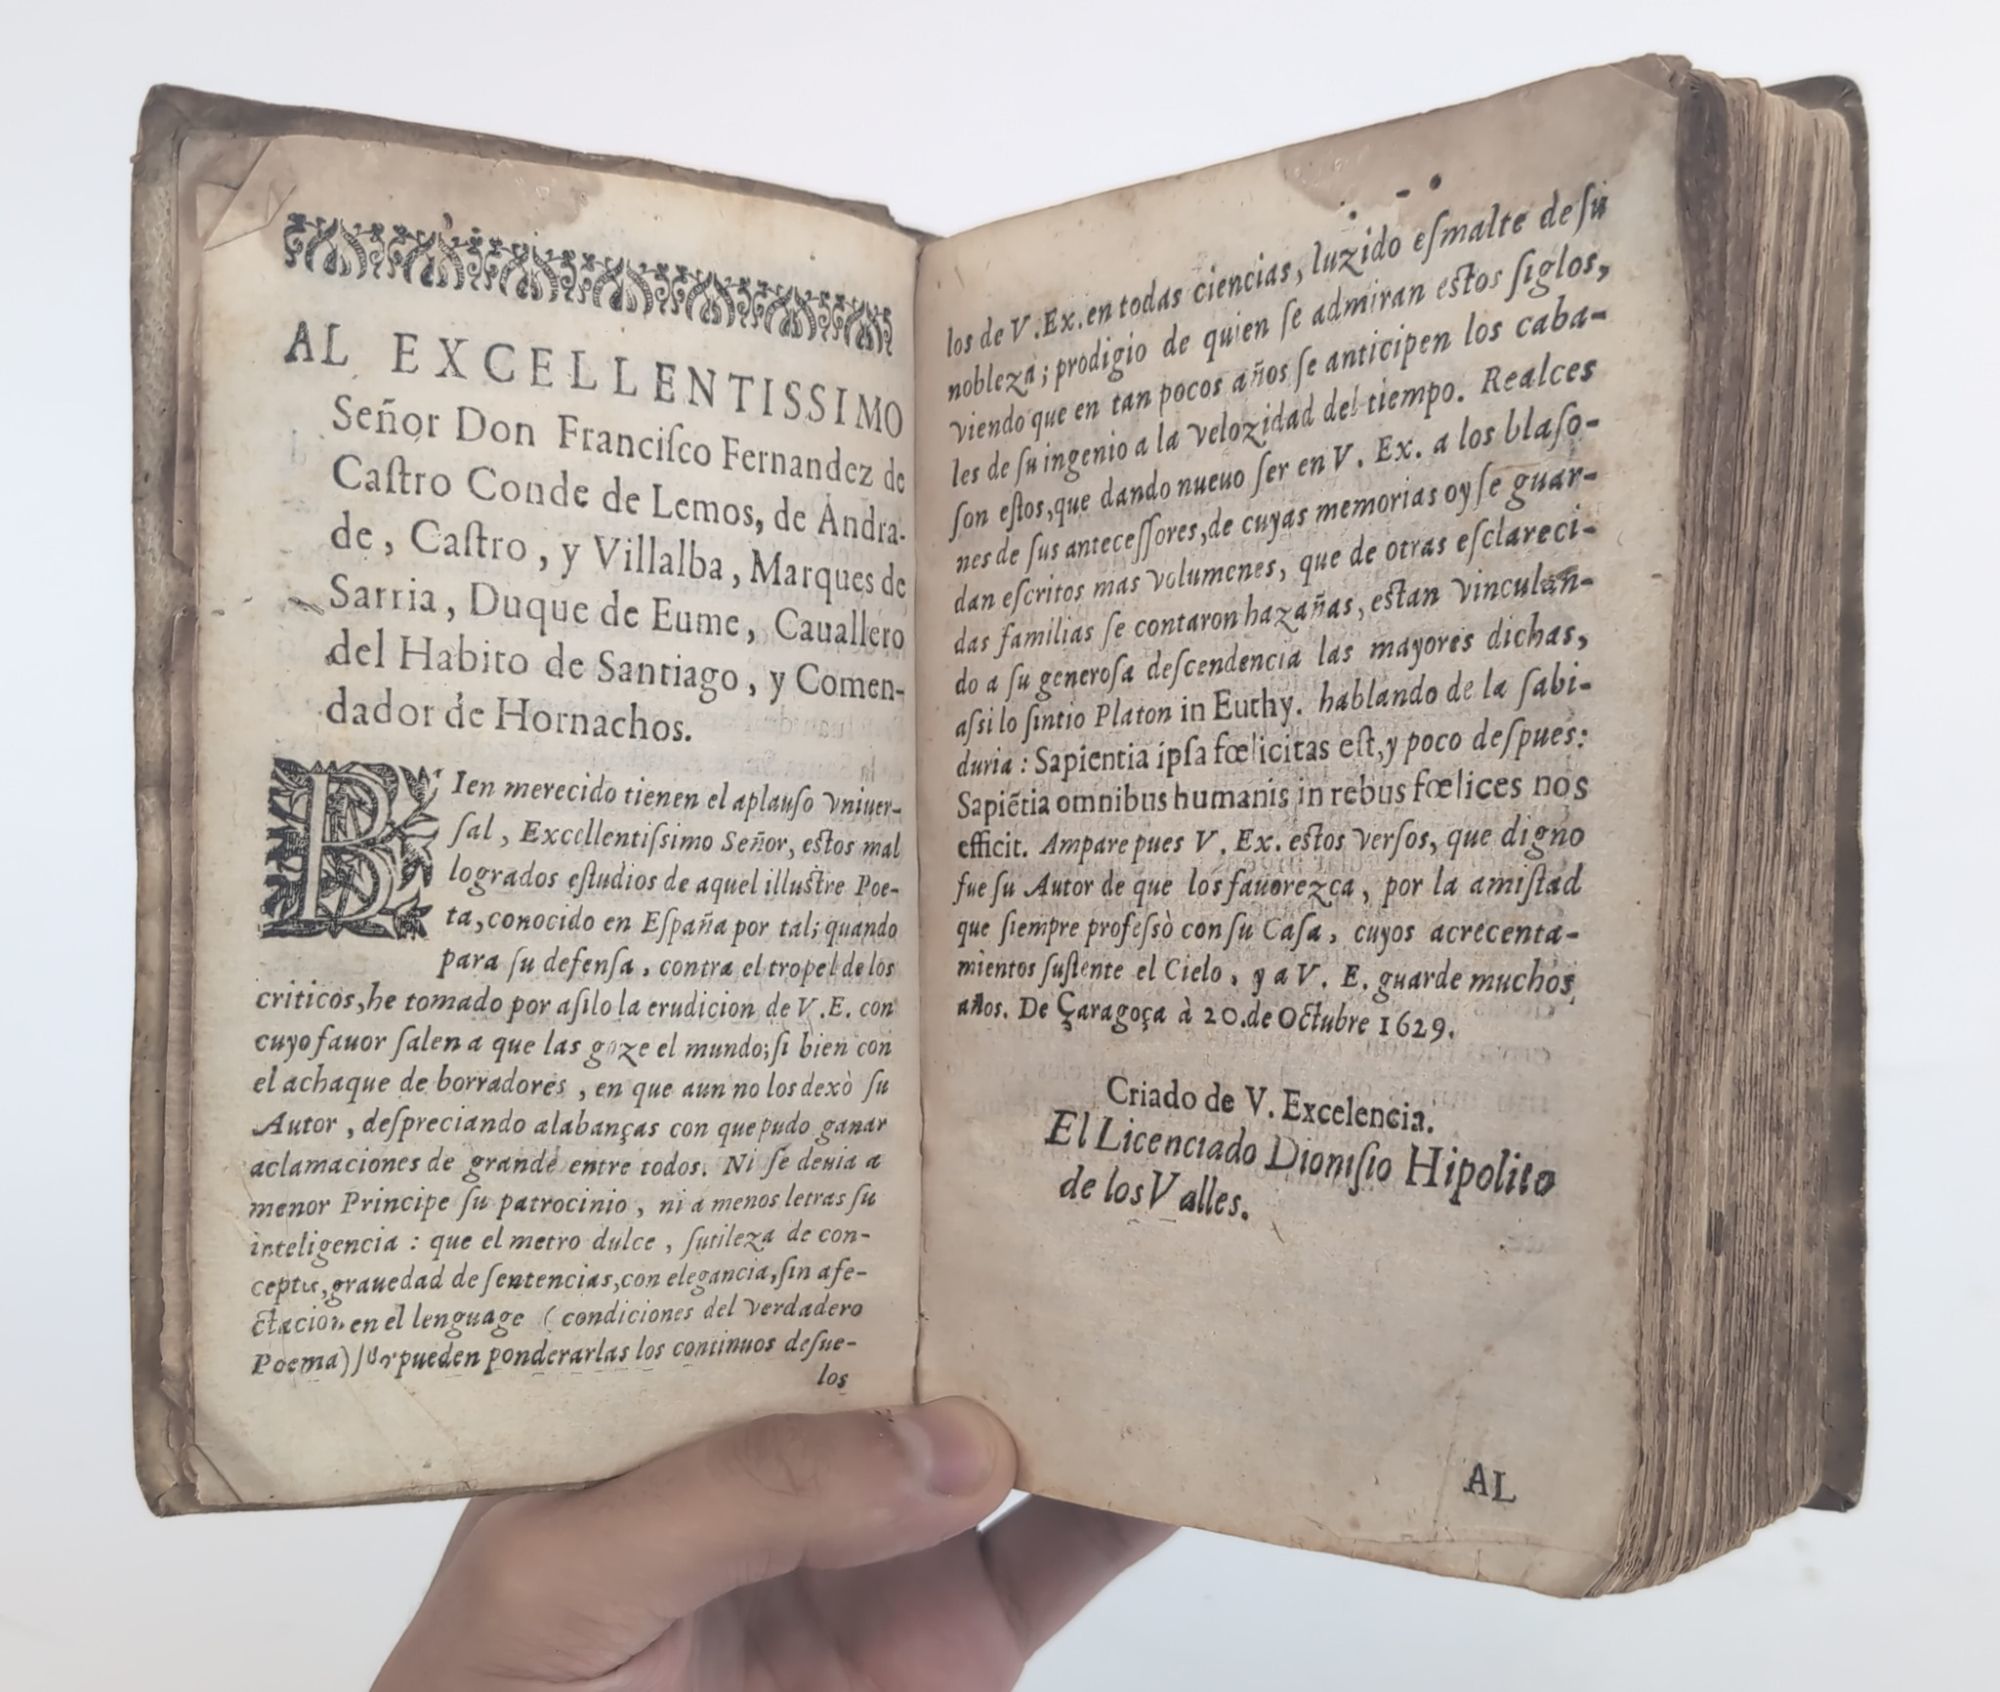 AL EXCELLENTISSIMO
Señor Don Franciſco Fernandez de
Caſtro Conde de Lemos, de Andra-
de, Caſtro, y Villalba, Marques de
Sarria, Duque de Eume, Cauallero
del Habito de Santiago, y Comen-
dador de Hornachos.
BIen merecido tienen el aplauſo vniuer-
ſal, Excellentiſsimo Señor, eſtos mal
logrados eſtudios de aquel illuſtre Poe-
ta, conocido en Eſpaña por tal; quando
para ſu defenſa, contra el tropel de los
criticos, he tomado por aſilo la erudicion de V.E. con
cuyo fauor ſalen a que las goze el mundo; ſi bien con
el achaque de borradores, en que aun no los dexò ſu
Autor, deſpreciando alabanças con que pudo ganar
aclamaciones de grande entre todos. Ni ſe deuia a
menor Principe ſu patrocinio, ni a menos letras ſu
inteligencia: que el metro dulce, ſutileza de con-
ceptos, grauedad de ſentencias, con elegancia, ſin afe-
ctacion en el lenguage (condiciones del verdadero
Poema) pueden ponderarlas los continuos deſue-
los
los de V.Ex. en todas ciencias, luzido eſmalte de ſu
nobleza; prodigio de quien ſe admiran eſtos ſiglos,
viendo que en tan pocos años ſe anticipen los caba-
les de ſu ingenio a la velozidad del tiempo. Realces
ſon eſtos, que dando nueuo ſer en V. Ex. a los blaſo-
nes de ſus anteceſſores, de cuyas memorias oy ſe guar-
dan eſcritos mas volumenes, que de otras eſclareci-
das familias ſe contaron hazañas, eſtan vinculan-
do a ſu generoſa deſcendencia las mayores dichas,
aſsi lo ſintio Platon in Euthy. hablando de la ſabi-
duria: Sapientia ipſa fœlicitas eſt, y poco deſpues:
Sapiẽtia omnibus humanis in rebus fœlices nos
efficit. Ampare pues V. Ex. eſtos verſos, que digno
fue ſu Autor de que los fauorezca, por la amiſtad
que ſiempre profeſsò con ſu Caſa, cuyos acrecenta-
mientos ſuſtente el Cielo, y a V. E. guarde muchos
años. De Çaragoça à 20. de Octubre 1629.
Criado de V. Excelencia.
El Licenciado Dioniſio Hipolito
de los Valles.
AL